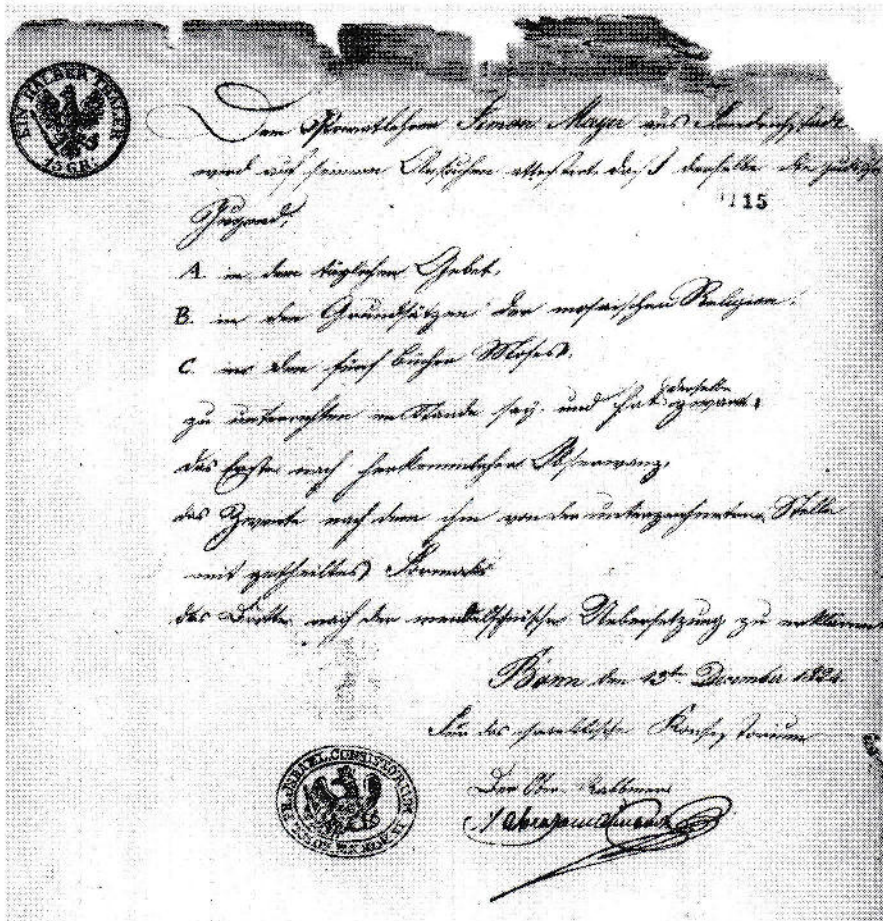 EIN HALBER THALER
15 GR.
Dem Privatlehrer Simon Mayer aus
wird auf seinem Ansuchen attestirt daß derselbe die jüdische
Jugend,
115
A. in dem täglichen Gebet,
B. in den Grundsätzen der mosaischen Religion,
C. in den fünf Bücher Moses,
zu unterrichten im Stande sey. und hat derselbe zwar,
das Erste nach herkömmlicher Observanz,
das Zweite nach dem ihm von der unterzeichneten Stelle
mit getheiltes
das Dritte nach der mendelsohnische Uebersetzung zu erklären
Bonn den 13t. December 1824.
Für das israelitische Konsistorium
Der Ober-Rabbiner
ISRAEL. CONSISTORIUM